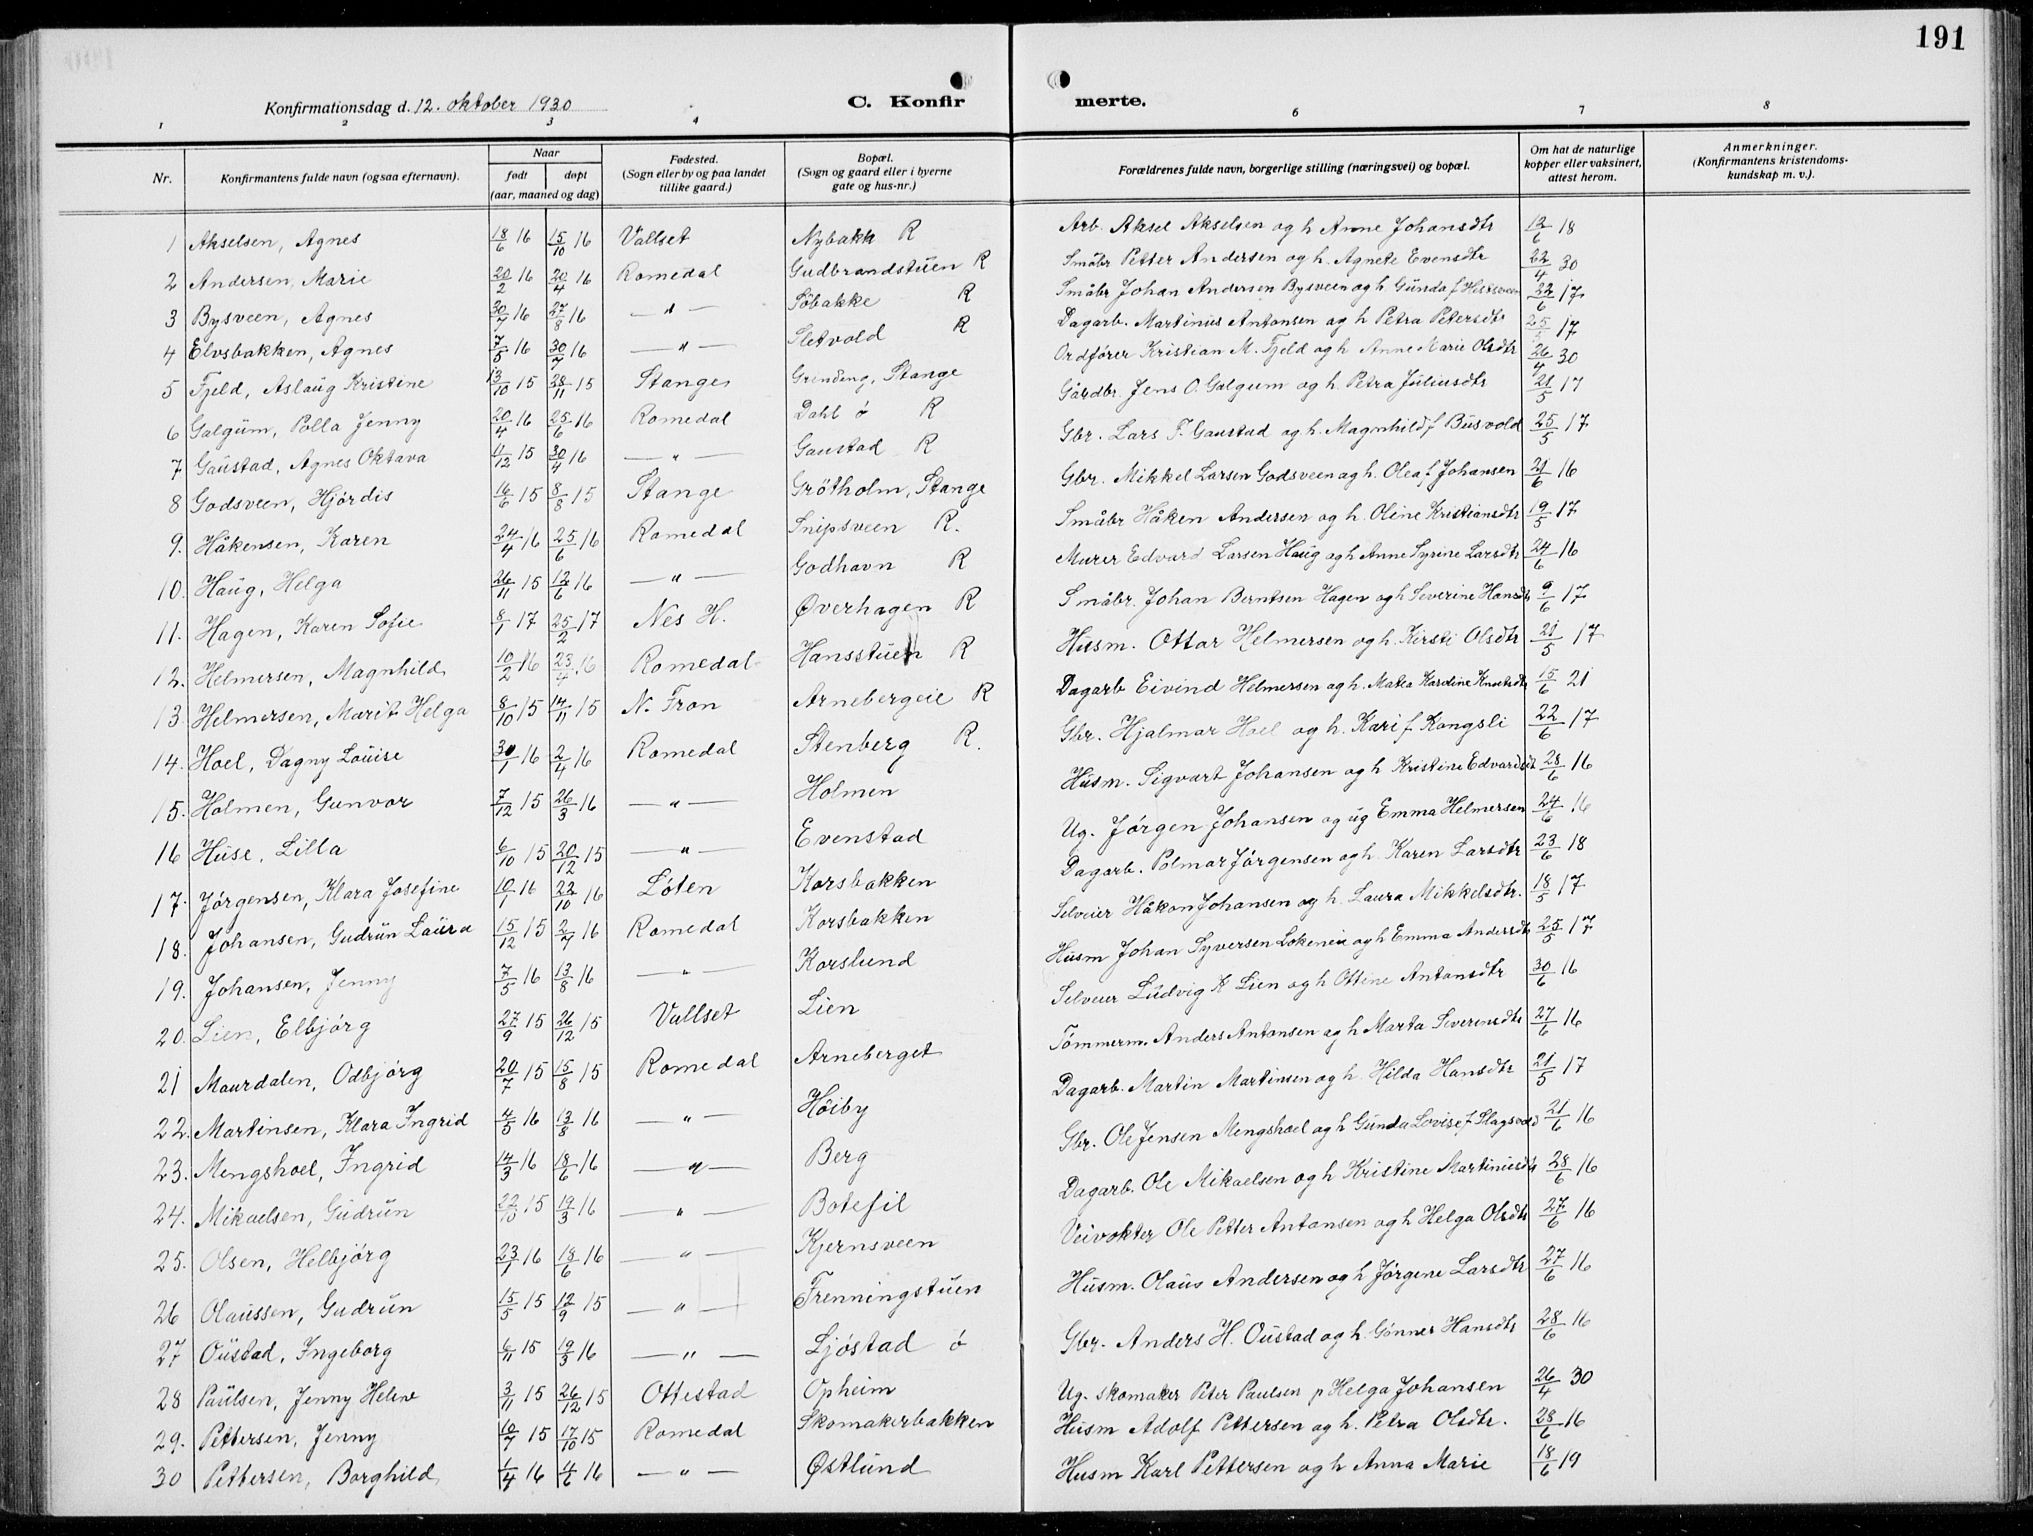 191
Konfirmationsdag d. 12. oktober 1930
C. Konfirmerte.
1 2 3 4 6 7 8
Nr.
Konfirmantens fulde navn (ogsaa efternavn).
Naar
født døpt
(aar, maaned og dag)
Fødested.
(Sogn eller by og paa landet
tillike gaard.)
Bopæl.
(Sogn og gaard eller i byerne
gate og hus-nr.)
Forældrenes fulde navn, borgerlige stilling (næringsvei) og bopæl.
Om hat de naturlige
kopper eller vaksinert,
attest herom.
Anmerkninger.
(Konfirmantens kristendoms-
kundskap m. v.).
1 Akselsen, Agnes 18/6 16 15/10 16 Vallset Nybakk R Arb. Aksel Akselsen og h Anne Johansdtr 12/6 18
2 Andersen, Marie 20/2 16 20/4 16 Romedal Gudbrandstuen R Småbr Petter Andersen og h. Agnete Evensdtr 22/4 30
3 Bysveen, Agnes 30/7 16 27/8 16 — " — Söbakke R Småbr Johan Andersen Bysveen og h Gunda f 22/6 17
4 Elvsbakken, Agnes 7/5 16 30/7 16 — " — Sletvold R Dagarb. Martinius Antonsen og h Petra Petersdtr 17
5 Fjeld, Aslaug Kristine 13/10 15 28/11 15 Stange Grindeng, Stange Ordfører Kristian M. Fjeld og h Anne Marie Olsdtr 26/4 30
6 Galgum, Polla Jenny 20/4 16 25/6 16 Romedal Dahl ö R Gårdbr. Jens O. Galgum og h. Petra Juliusdtr 21/5 17
7 Gaustad, Agnes Oktava 11/12 15 30/4 16 — " — Gaustad R Gbr. Lars T. Gaustad og h. Magnhild f Busvold 25/5 17
8 Godsveen, Hjördis 16/6 15 8/8 15 Stange Grötholm, Stange Gbr. Mikkel Larsen Godsveen og h. Olea f Johansen 21/6 16
9. Håkensen, Karen 24/4 16 25/6 16 Romedal Snipsveen R. Småbr Håken Andersen og h. Oline Kristiansdtr 19/5 17
10. Haug, Helga 26/11 15 12/6 16 — " — Godhavn R Murer Edvard Larsen Haug og h Anne Syrine Larsdtr 24/6 16
11. Hagen, Karen Sofie 8/1 17 25/2 17 Nes H. Øverhagen R Småbr. Johan Berntsen Hagen og h Severine Hansdtr 9/6 17
12. Helmersen, Magnhild 10/2 16 23/4 16 Romedal Hansstuen R Husm. Ottar Helmersen og h. Kirsti Olsdtr 21/5 17
13 Helmersen, Marit Helga 8/10 15 14/11 15 N. Fron Arnebergeie R Dagarb Eivind Helmersen og h. Matea Karoline Knutsdtr 15/6 21
14. Hoel, Dagny Louise 30/1 16 2/4 16 Romedal Stenberg R. Gbr. Hjalmar Hoel og h. Kari f Kongsli 22/6 17
15. Holmen, Gunvor 7/12 15 26/3 16 — " — Holmen Husm. Sigvart Johansen og h Kristine Edvardsdt 28/6 16
16 Huse, Lilla 6/10 15 20/12 15 — " — Evenstad Ug. Jörgen Johansen og ug Emma Helmersen 24/6 16
17. Jørgensen, Klara Josefine 10/1 16 22/10 16 Löten Korsbakken Dagarb. Polmar Jörgensen og h. Karen Larsdtr 23/6 18
18. Johansen, Gudrun Laura 15/12 15 2/7 16 Romedal Korsbakken Selveier Håkon Johansen og h. Laura Mikkelsdtr. 18/5 17
19. Johansen, Jenny 7/5 16 13/8 16 — " — Korslund Husm Johan Syversen og h Emma Andersdtr 25/5 17
20. Lien, Elbjörg 27/9 15 26/12 15 Vallset Lien Selveier Ludvig K Lien og h Ottine Antonsdtr 30/6 16
21 Maurdalen, Odbjörg 20/7 15 15/8 15 Romedal Arneberget Tömmerm. Anders Antonsen og h Marta Severinsdtr 27/6 16
22. Martinsen, Klara Ingrid 4/5 16 13/8 16 — " — Höiby Dagarb. Martin Martinsen og h. Hilda Hansdtr 21/5 17
23. Mengshoel, Ingrid 14/3 16 18/6 16 — " — Berg Gbr. Ole Jensen Mengshoel og h Gunda Lovise f Slagsvold 21/6 16
24. Mikaelsen, Gudrun 22/10 15 19/3 16 — " — Botefil Dagarb. Ole Mikaelsen og h Kristine Martiniusdtr 28/6 16
25. Olsen, Helbjörg 23/1 16 18/6 16 — " — Kjernsveen Veivokter Ole Petter Antonsen og h Helga Olsdtr 27/6 16
26 Olaussen, Gudrun 15/5 15 12/9 15 — " — Frenningstuen Husm. Olaus Andersen og h Jörgene Larsdtr 27/6 16
27 Oustad, Ingeborg 6/11 15 19/3 16 — " — Ljöstad ö Gbr. Anders H. Oustad og h. Gönner Hansdtr 28/6 16
28 Paulsen, Jenny Helene 3/11 15 26/12 15 Ottestad Opheim Ug. skomaker Peter Paulsen p Helga Johansen 26/4 30
29. Pettersen, Jenny 10/7 15 17/10 15 Romedal Skomakerbakken Husm Adolf Pettersen og h. Petra Olsdtr. 28/6 16
30 Pettersen, Borghild 1/4 16 4/6 16 — " — Østlund Husm Karl Pettersen og h Anna Marie 18/6 19